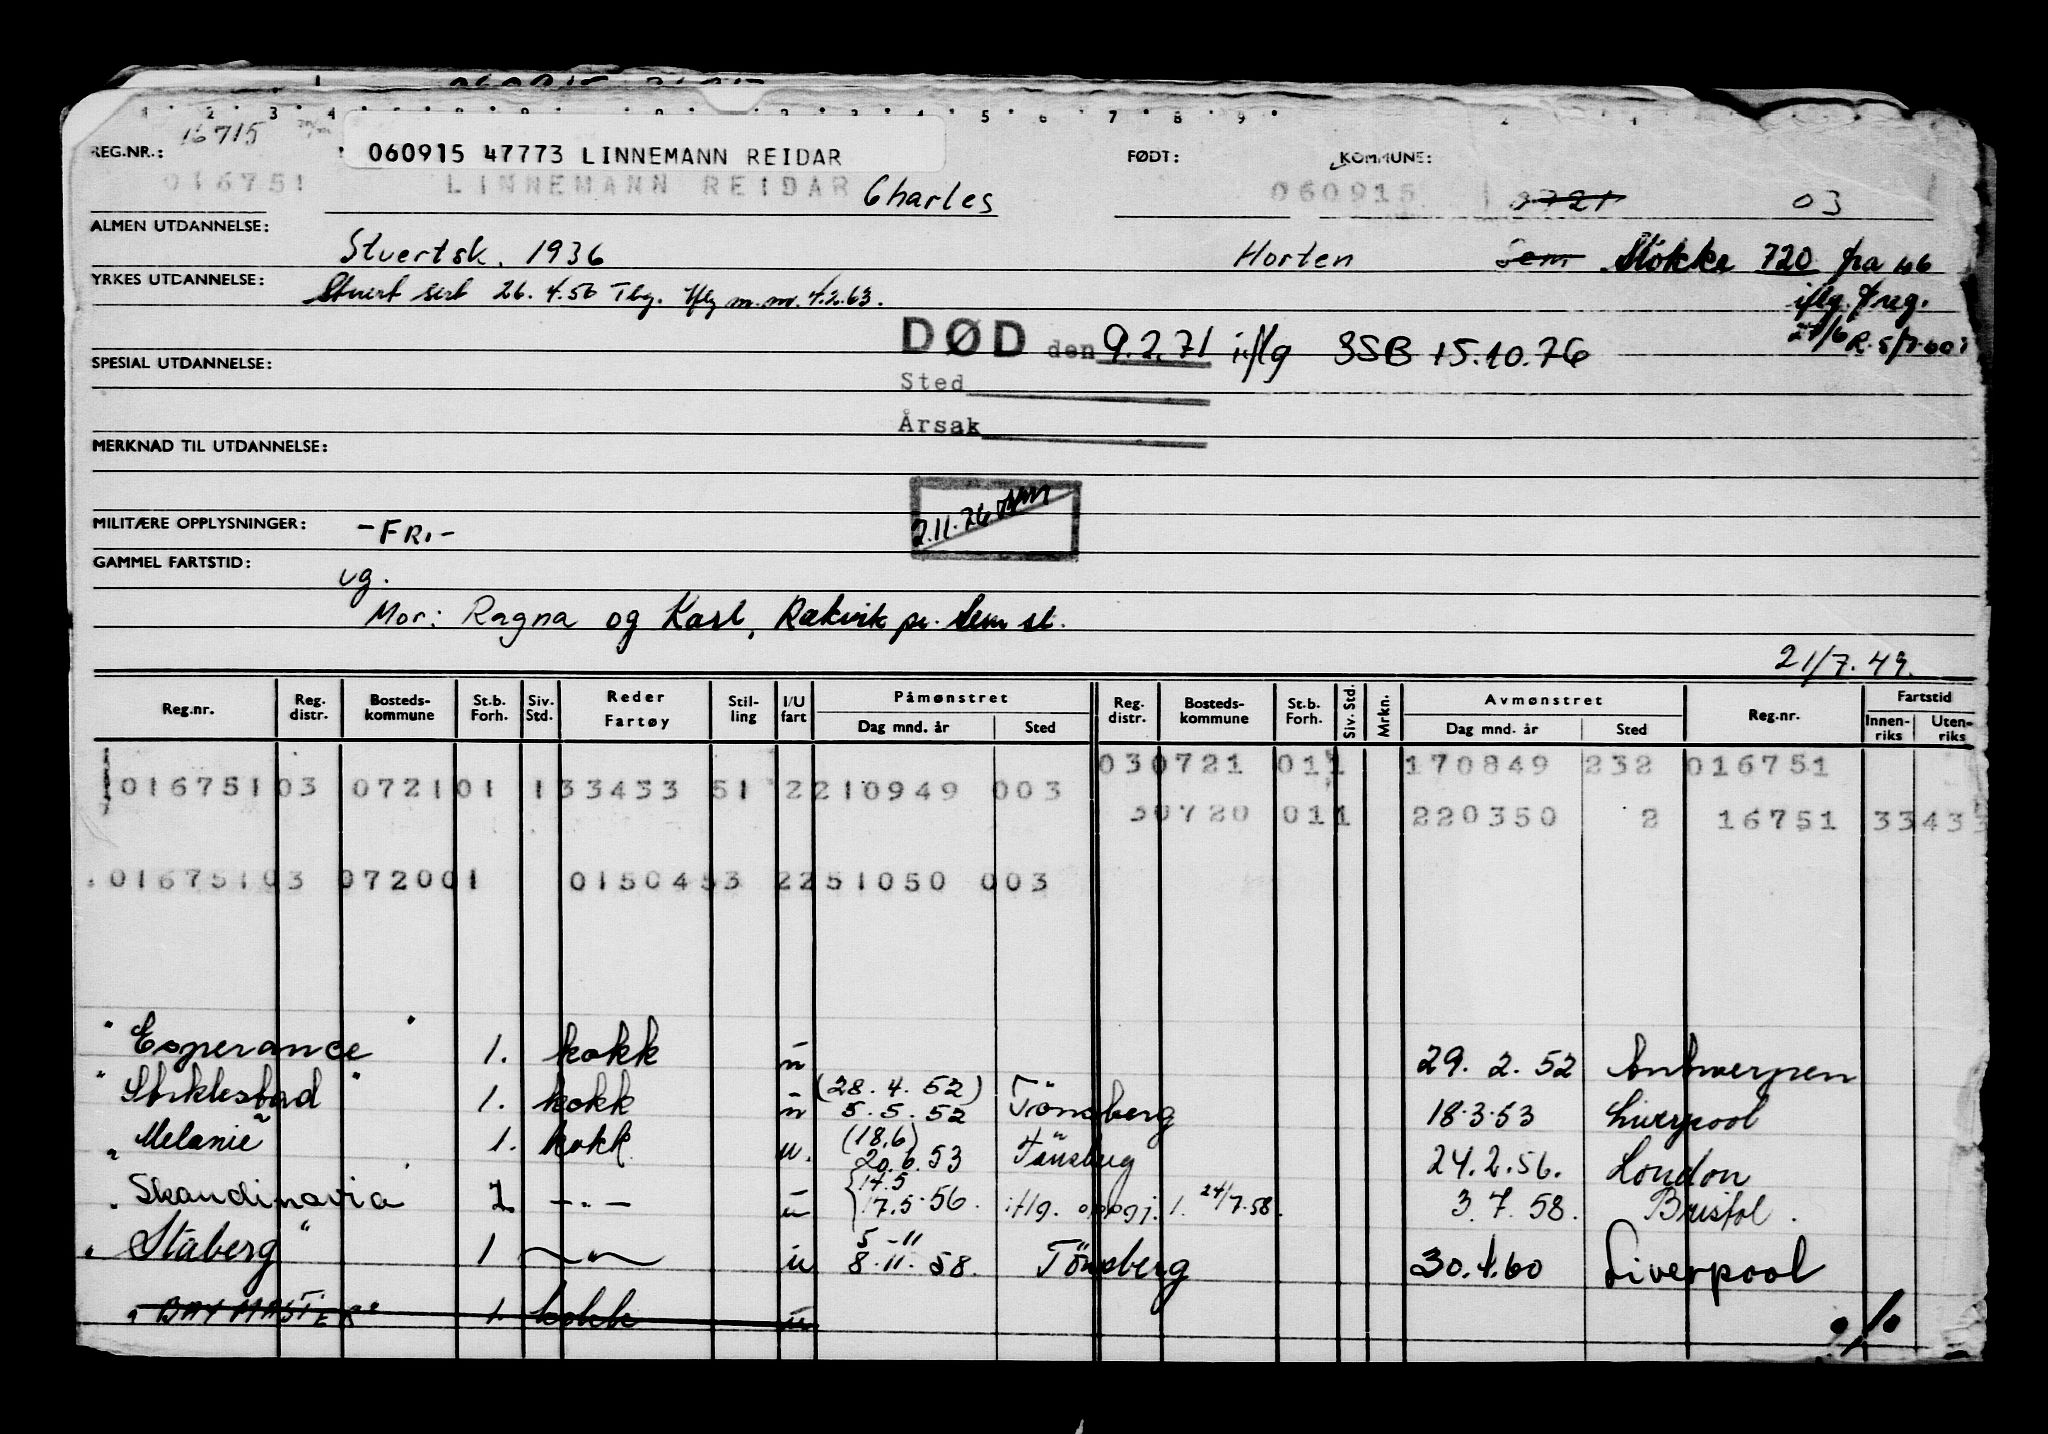 1 2 3 4 5 6 7 8 9
16715
REG.NR.: 060915 47773 LINNEMANN REIDAR FØDT: KOMMUNE:
016751 LINNEMANN REIDAR Charles 060915 0721 03
ALMEN UTDANNELSE:
Stuertsk. 1936 Horten Sem Stokke 720 fra 46
YRKES UTDANNELSE: Stuert sert 26.4.56 Tbg. iflg m.m. 4.2.63. iflg. freg.
DØD den 9.2.71 iflg SSB 15.10.76
SPESIAL UTDANNELSE:
Sted
Årsak
MERKNAD TIL UTDANNELSE:
2.11.76
MILITÆRE OPPLYSNINGER: -FRI-
GAMMEL FARTSTID:
ug.
Mor: Ragna og Karl, Rakvik pr. Sem st.
21/7.49.
Reg.nr. Reg. distr. Bosteds-kommune St.b. Forh. Siv. Std. Reder Fartøy Stil-ling I/U fart Påmønstret Dag mnd. år Sted Reg. distr. Bosteds-kommune St.b. Forh. Siv. Std. Mrkn. Avmønstret Dag mnd. år Sted Reg.nr. Fartstid Innen-riks Uten-riks
030721 011 170849 232 016751
01675103 072101 133433 51 2210949 003
30720 011 220350 2 16751 33433
01675103 072001 0150453 2251050 003
"Esperance" 1. kokk u 29.2.52 Antwerpen
"Stiklestad" 1. kokk u (28.4.52) 5.5.52 Tönsberg 18.3.53 Liverpool
"Melanie" 1. kokk u. (18.6) 20.6.53 Tönsberg 24.2.56. London
"Skandinavia 1 -"- u 14.5 17.5.56. iflg. oppgj. 1. 24/7.58. 3.7.58. Bristol.
"Staberg" 1 -"- u 5-11 8.11.58. Tönsberg 30.4.60 Liverpool
"BAY MASTER" 1. kokk u